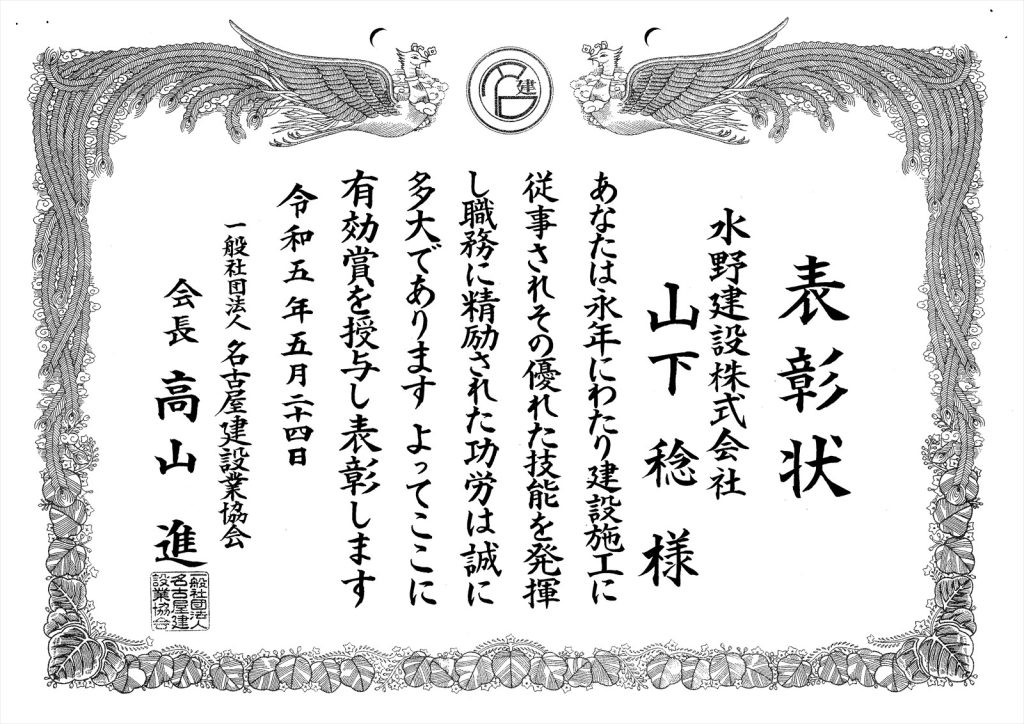 表彰状
水野建設株式会社
山下稔様
あなたは永年にわたり建設施工に
従事されその優れた技能を発揮
し職務に精励された功労は誠に
多大であります よってここに
有効賞を授与し表彰します
令和五年五月二十四日
一般社団法人 名古屋建設業協会
会長 高山進
一般社団法人
名古屋建
設業協会
建